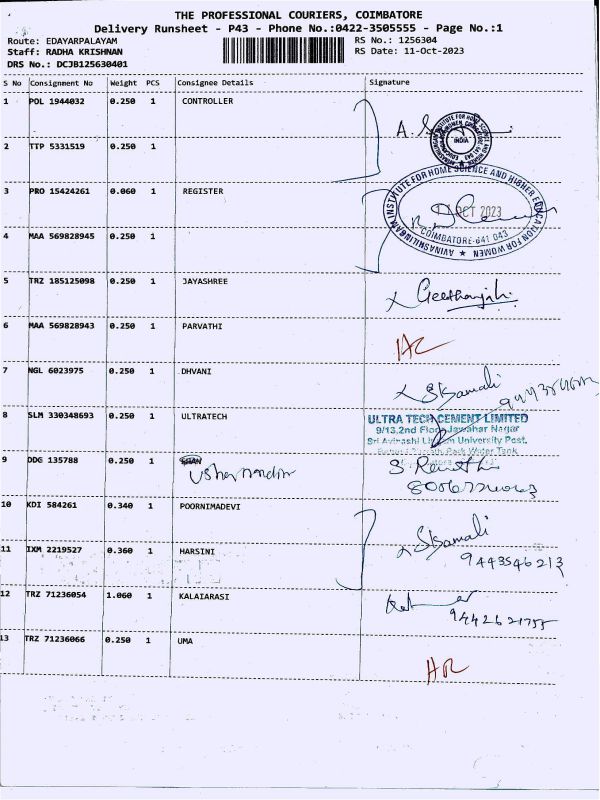 THE PROFESSIONAL COURIERS, COIMBATORE
Delivery Runsheet - P43 - Phone No.:0422-3505555 - Page No.:1
Route: EDAYARPALAYAM RS No.: 1256304
Staff: RADHA KRISHNAN RS Date: 11-Oct-2023
DRS No.: DCJB125630401
S No Consignment No Weight PCS Consignee Details Signature
1 POL 1944032 0.250 1 CONTROLLER
A.
INDIA
2 TTP 5331519 0.250 1
AVINASHILINGAM INSTITUTE FOR HOME SCIENCE AND HIGHER EDUCATION FOR WOMEN
3 PRO 15424261 0.060 1 REGISTER
OCT 2023
4 MAA 569828945 0.250 1
COIMBATORE-641 043
5 TRZ 185125098 0.250 1 JAYASHREE
Geethanjali
6 MAA 569828943 0.250 1 PARVATHI
7 NGL 6023975 0.250 1 DHVANI
SKamali
8 SLM 330348693 0.250 1 ULTRATECH
ULTRA TECH CEMENT LIMITED
9/13,2nd Floor, Jawahar Nagar
Sri Avinashi University Post,
9 DDG 135788 0.250 1
10 KDI 584261 0.340 1 POORNIMADEVI
SKamali
11 IXM 2219527 0.360 1 HARSINI
9443546213
12 TRZ 71236054 1.060 1 KALAIARASI
13 TRZ 71236066 0.250 1 UMA